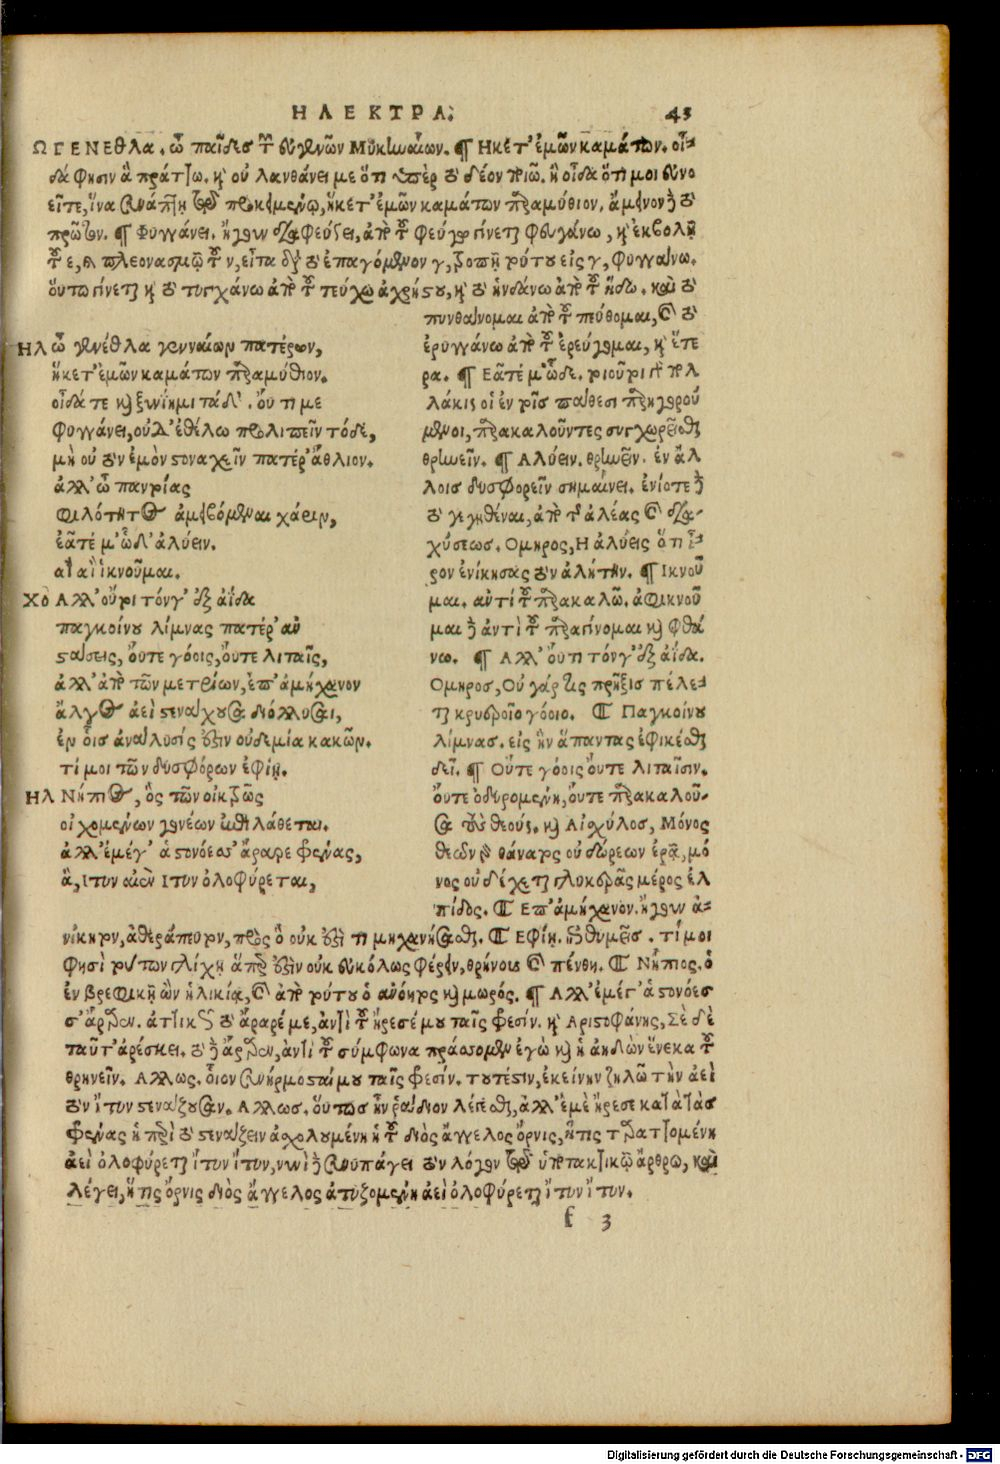 ΗΛΕΚΤΡΑ. 43
Ω ΓΕΝΕΘΛΑ. ὦ παῖδες τῶν εὐγενῶν Μυκηναίων. ¶ Ηκετ' ἐμῶν καμάτων. οἶ-
δά φησιν ἃ πράττω. καὶ οὐ λανθάνει με ὅτι ὑπὲρ τὸ δέον ποιῶ. ἢ οἶδα ὅτι μοι συνο
εῖτε, ἵνα συνάπτη τῷ προκειμένῳ, ἥκετ' ἐμῶν καμάτων παραμύθιον. ἄμεινον δὲ τὸ
πρῶτον. ¶ Φυγγάνει. ἤγουν διαφεύξει, ἀπὸ τοῦ φεύγω γίνεται φευγάνω, καὶ ἐκβολῇ
τοῦ ε, καὶ πλεονασμῷ τοῦ ν, εἶτα διὰ τὸ ἐπαγόμενον γ, τροπῇ τούτου εἰς γ, φυγγάνω.
οὕτω γίνεται καὶ τὸ τυγχάνω ἀπὸ τοῦ τεύχω ἀχρήστου, καὶ τὸ ἁνδάνω ἀπὸ τοῦ ἥδω. καὶ τὸ
πυνθάνομαι ἀπὸ τοῦ πεύθομαι, καὶ τὸ
ἐρυγγάνω ἀπὸ τοῦ ἐρεύγομαι, καὶ ἕτε
ρα. ¶ Εᾶτέ μ' ὧδε. τοιοῦτοι πολ
λάκις οἱ ἐν τοῖς πάθεσι παρηγορού
μενοι, παρακαλοῦντες συγχωρεῖσθαι
θρηνεῖν. ¶ Αλύειν. θρηνεῖν. ἐν ἄλ
λοις δυσφορεῖν σημαίνει. ἐνίοτε δὲ
τὸ γεγηθέναι, ἀπὸ τῆς ἀλέας καὶ δια-
χύσεως. Ομηρος, Η ἀλύεις ὅτι ἶ-
ρον ἐνίκησας τὸν ἀλήτην. ¶ Ικνοῦ
μαι. αντὶ τοῦ παρακαλῶ. ἀφικνοῦ
μαι δὲ ἀντὶ τοῦ παραγίνομαι καὶ φθά
νω. ¶ Αλλ' οὔτι τόνγ' ἐξ ἀΐδα.
Ομηρος, Οὐ γάρ τις πρῆξις πέλε-
ται κρυεροῖο γόοιο. ¶ Παγκοίνου
λίμνας. εἰς ἣν ἅπαντας ἐφικέσθαι
δεῖ. ¶ Οὔτε γόοις οὔτε λιταῖσιν.
οὔτε ὀδυρομένη, οὔτε παρακαλοῦ-
σα τοὺς θεούς. καὶ Αἰσχύλος, Μόνος
θεῶν γὰρ θάνατος οὐ δώρεων ἐρᾷ, μό
νος οὐ δέχεται γλυκερᾶς μέρος ἐλ
πίδος. ¶ Επ' ἀμήχανον. ἤγουν ἀ-
ΗΛ ὦ γενέθλα γενναίων πατέρων,
ἥκετ' ἐμῶν καμάτων παραμύθιον.
οἶδά τε καὶ ξυνίημι τάδ'. οὔ τι με
φυγγάνει, οὐδ' ἐθέλω προλιπεῖν τόδε,
μὴ οὐ τὸν ἐμὸν στοναχεῖν πατέρ' ἄθλιον.
ἀλλ' ὦ παντοίας
φιλότητος ἀμειβόμεναι χάριν,
ἐᾶτέ μ' ὧδ' ἀλύειν.
αἲ αἲ ἱκνοῦμαι.
ΧΟ Αλλ' οὔτι τόνγ' ἐξ ἀΐδα
παγκοίνου λίμνας πατέρ' ἀν
στάσεις, οὔτε γόοις, οὔτε λιταῖς,
ἀλλ' ἀπὸ τῶν μετρίων, ἐπ' ἀμήχανον
ἄλγος ἀεὶ στενάχουσα διόλλυσαι,
ἐν οἷς ἀνάλυσίς ἐστιν οὐδεμία κακῶν.
τί μοι τῶν δυσφόρων ἐφίῃ.
ΗΛ Νήπιος, ὃς τῶν οἰκτρῶς
οἰχομένων γονέων ἐπιλάθεται.
ἀλλ' ἐμέγ' ἁ στονόεσσ' ἄραρε φρένας,
ἃ, ἴτυν αἰὲν ἴτυν ὀλοφύρεται,
νίκητον, ἀθεράπευτον, πρὸς ὃ οὐκ ἔστι τι μηχανήσασθαι. ¶ Εφίῃ. ἐπιθυμεῖς. τί μοι
φησὶ τούτων γλίχῃ ἅπερ ἐστὶν οὐκ εὐκόλως φέρειν, θρήνοις καὶ πένθη. ¶ Νήπιος. ὁ
ἐν βρεφικῇ ὢν ἡλικίᾳ, καὶ ἀπὸ τούτου ὁ ἀνόητος καὶ μωρός. ¶ Αλλ' ἐμέγ' ἁ στονόεσ
σ' ἄραρεν. ἀττικῶς τὸ ἄραρέ με, ἀντὶ τοῦ ἤρεσέ μου ταῖς φρεσίν. καὶ Αριστοφάνης, Σὲ δὲ
ταῦτ' ἀρέσκει. τὸ δὲ ἄραρεν, ἀντὶ τοῦ σύμφωνα πράσσομεν ἐγὼ καὶ ἡ ἀηδὼν ἕνεκα τοῦ
θρηνεῖν. Αλλως. οἷον συνήρμοσταί μου ταῖς φρεσίν. τουτέστιν, ἐκείνην ζηλῶ τὴν ἀεὶ
τὸν ἴτυν στενάζουσαν. Αλλως. οὕτως ἦν ῥάδιον λέγεσθαι, ἀλλ' ἐμὲ ἤρεσε κατὰ τὰς
φρένας ἡ περὶ τὸ στενάζειν ἀσχολουμένη ἡ τοῦ διὸς ἄγγελος ὄρνις, ἥτις ταραττομένη
ἀεὶ ὀλοφύρεται ἴτυν ἴτυν, νυνὶ δὲ συνυπάγει τὸν λόγον τῷ ὑποτακτικῷ ἄρθρῳ, καὶ
λέγει, ἥτις ὄρνις διὸς ἄγγελος ἀτυζομένη ἀεὶ ὀλοφύρεται ἴτυν ἴτυν.
f 3
Digitalisierung gefördert durch die Deutsche Forschungsgemeinschaft - DFG